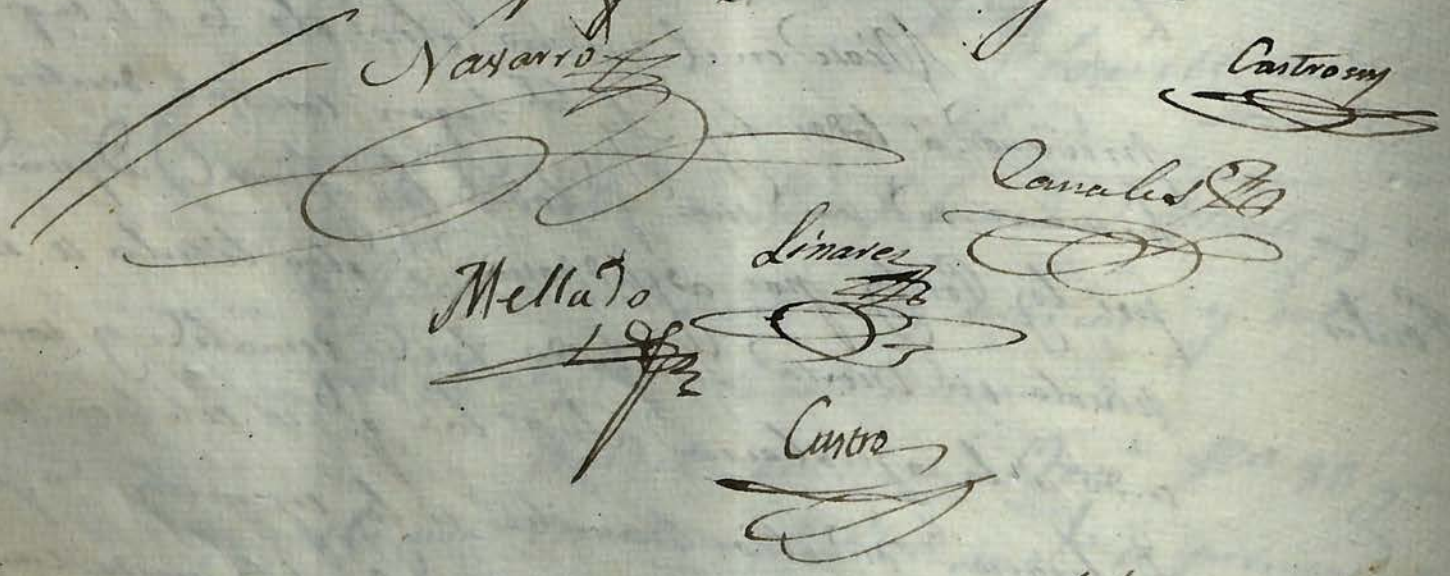 Navarro
Castro
Canales
Linares
Mellado
Castro